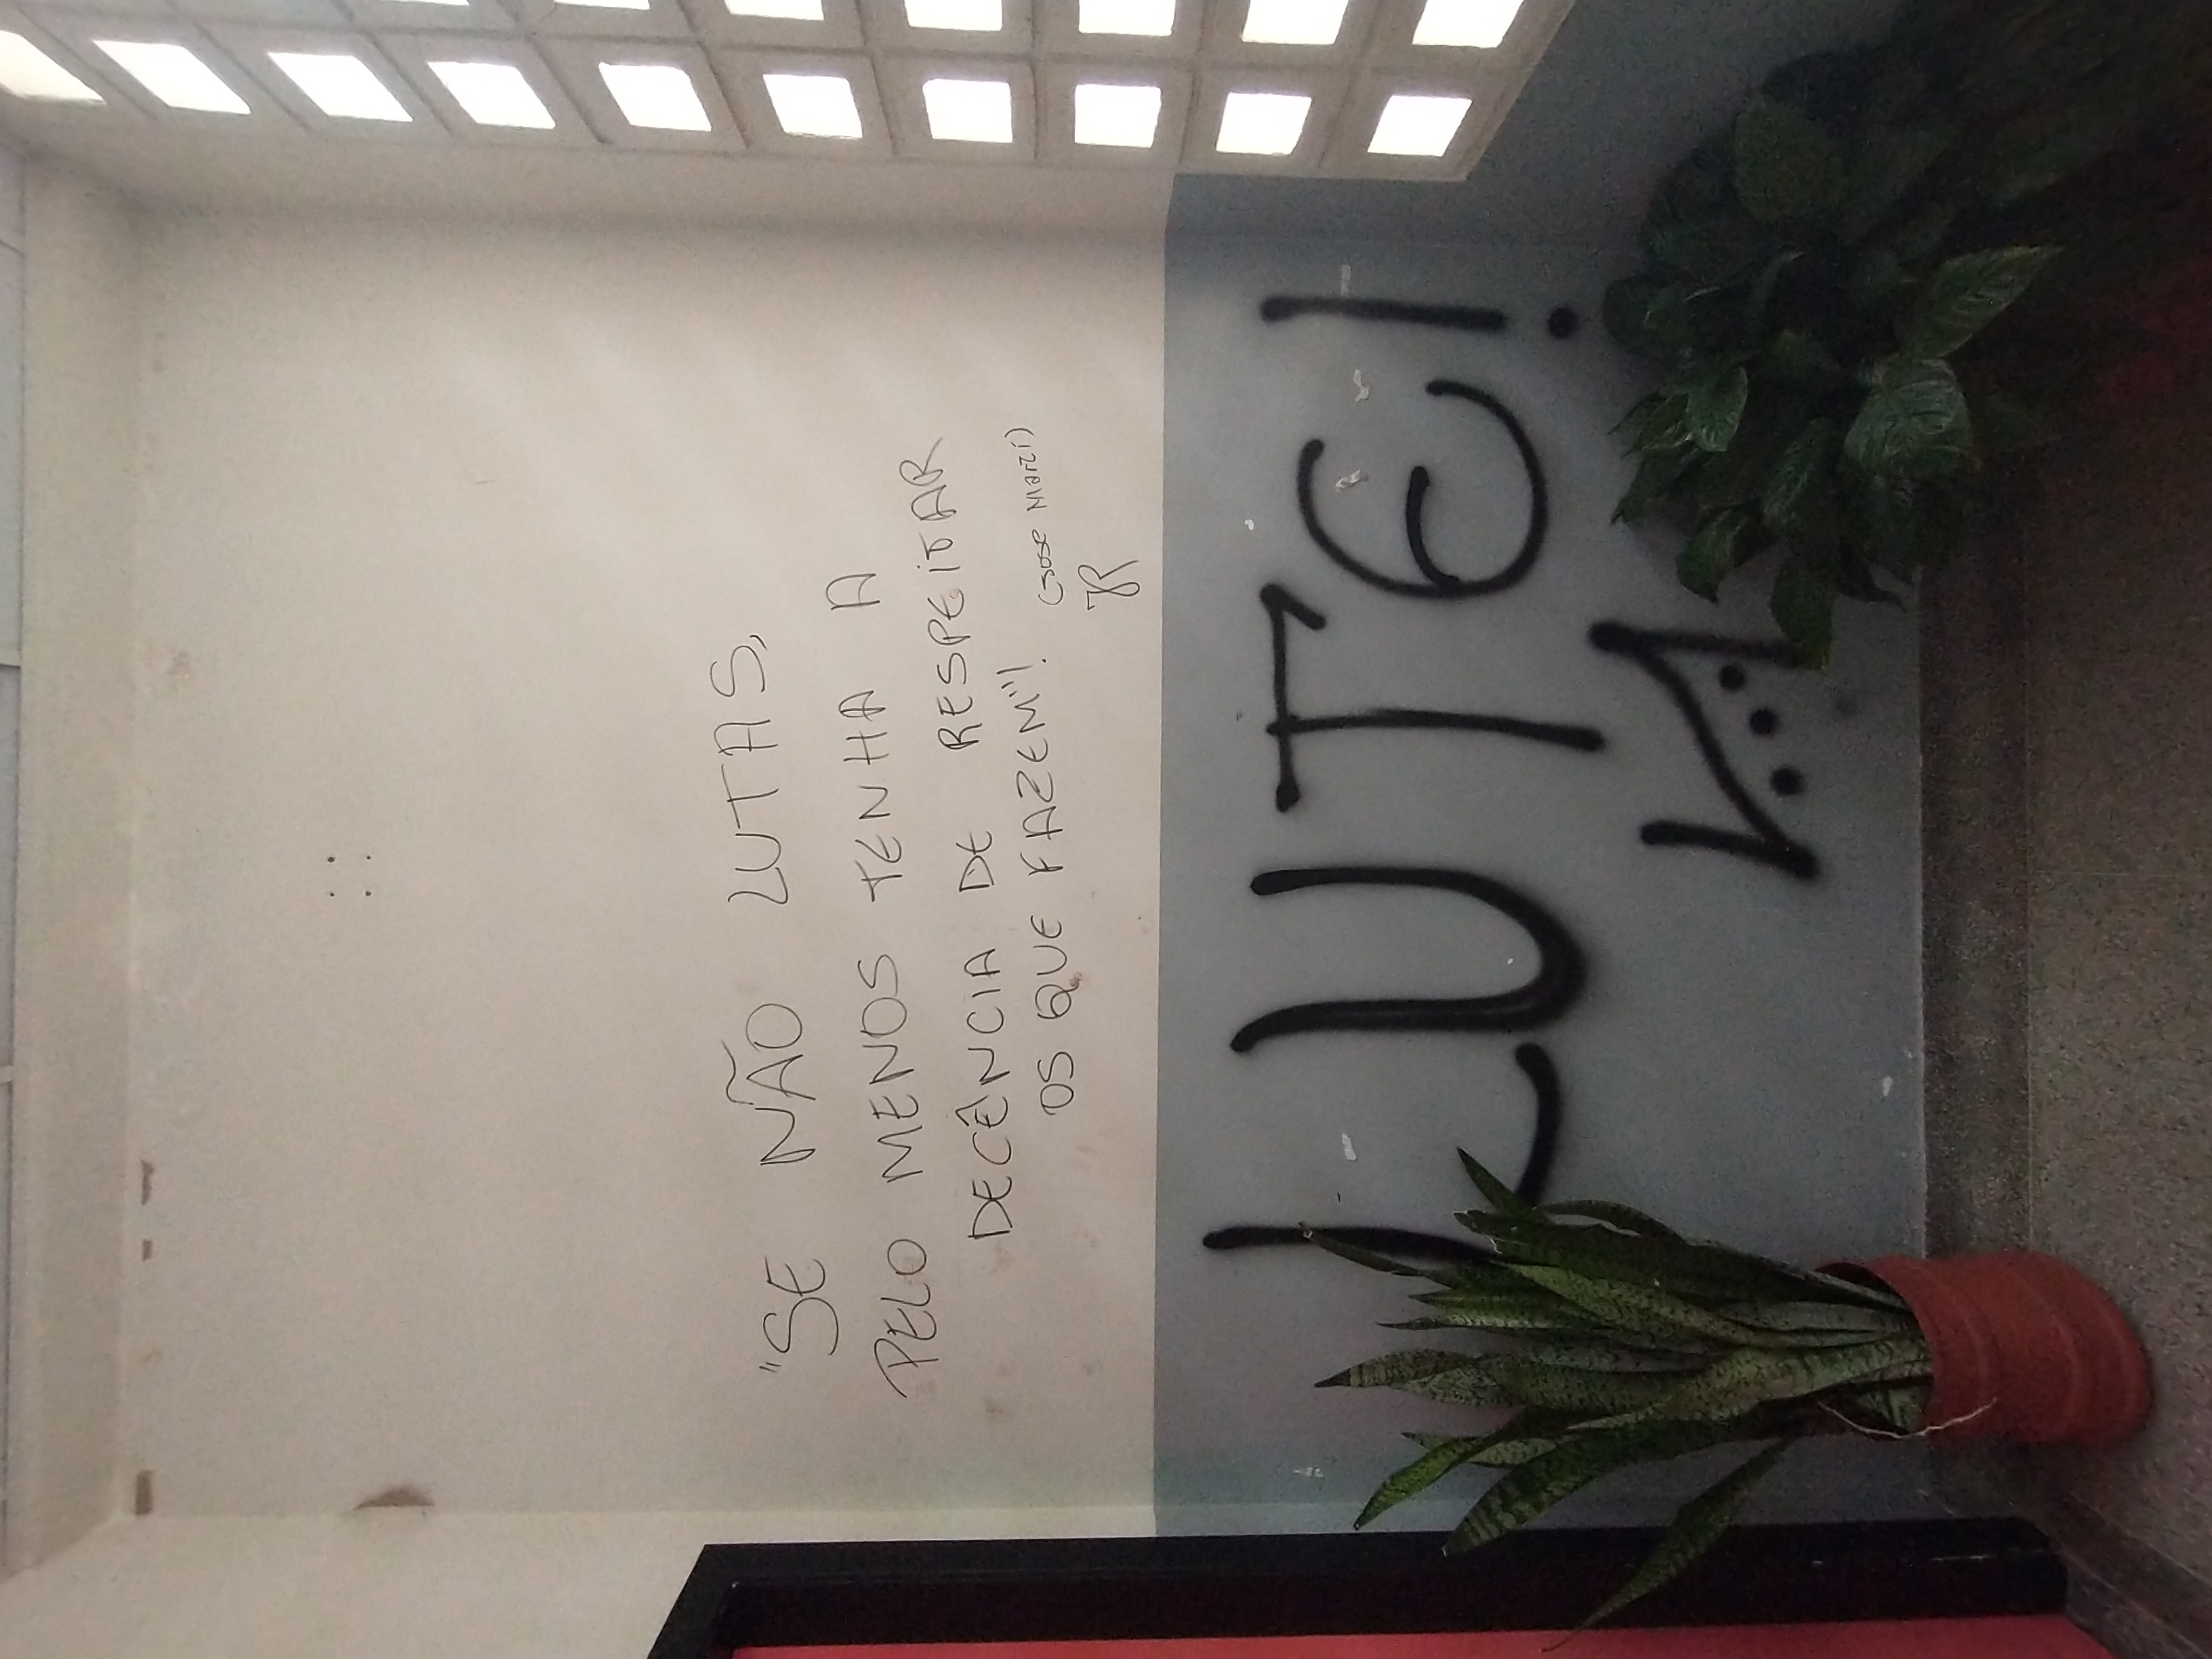 "SE NÃO LUTAS,
PELO MENOS TENHA A
DECÊNCIA DE RESPEITAR
OS QUE FAZEM"!
(Jose Martí)
JR
LUTE!